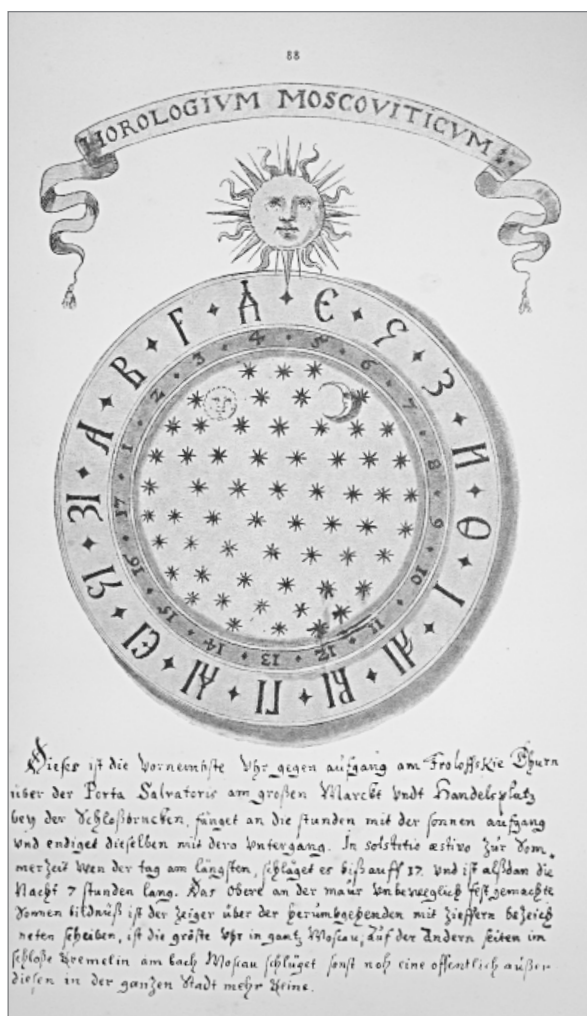 88
HOROLOGIVM MOSCOVITICVM
А В Г Д Є Ѕ З И Ѳ І АІ ВІ ГІ ДІ ЕІ ЅІ ЗІ
1 2 3 4 5 6 7 8 9 10 11 12 13 14 15 16 17
Dieses ist die Vornembste Vhr gegen aufgang am Froloffskie Thurn
über der Porta Salvatoris am großen Marckt vndt Handelsplatz
bey der Schloßbrucken, fänget an die stunden mit der sonnen aufgang
vnd endiget dieselben mit dero vntergang. In solstitio æstivo zur Som,
merzeit wen der tag am längsten, schläget es bißauff 17. vnd ist alßdan die
Nacht 7 stunden lang. Das Obere an der maur vnbeweglich fest gemachte
Sonnen bildnüß ist der Zeiger über der herumbgehenden mit zieffern bezeich
neten scheiben, ist die gröste vhr in gantz Moscau, auf der Andern seiten im
schloße Kremelin am bach Moscau schläget sonst noh eine offentlich außer
diesen in der ganzen Stadt mehr Keine.